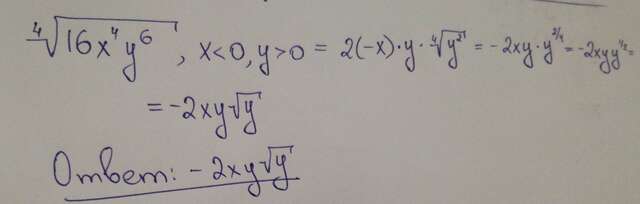 ⁴√(16x⁴y⁶), x<0, y>0 = 2(-x)·y·⁴√(y²) = -2xy·y^(2/4) = -2xyy^(1/2) =
= -2xy√y
Ответ: -2xy√y